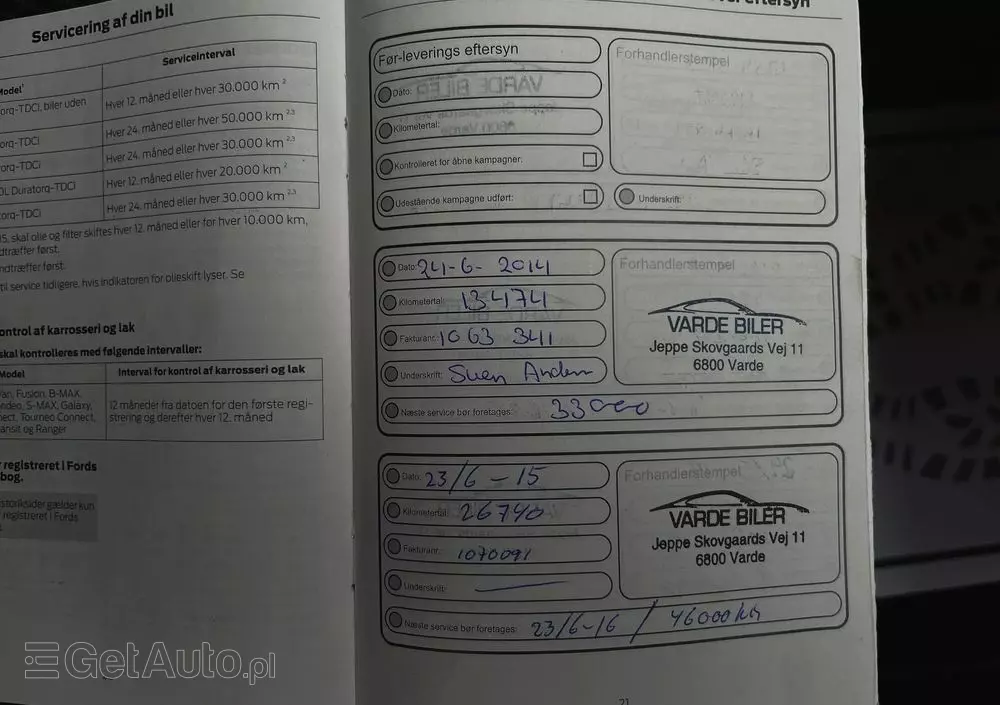 Servicering af din bil
Model¹
Serviceinterval
orq-TDCi, biler uden
Hver 12. måned eller hver 30.000 km ²
orq-TDCi
Hver 24. måned eller hver 50.000 km ²·³
orq-TDCi
Hver 24. måned eller hver 30.000 km ²·³
0L Duratorq-TDCi
Hver 12. måned eller hver 20.000 km ²
torq-TDCi
Hver 24. måned eller hver 30.000 km ²·³
15, skal olie og filter skiftes hver 12. måned eller for hver 10.000 km,
dtræffer først.
ndtræffer først.
til service tidligere, hvis indikatoren for olieskift lyser. Se
ontrol af karrosseri og lak
skal kontrolleres med følgende intervaller:
Model
Interval for kontrol af karrosseri og lak
an, Fusion, B-MAX,
ondeo, S-MAX, Galaxy,
nect, Tourneo Connect,
ansit og Ranger
12 måneder fra datoen for den første regi-
strering og derefter hver 12. måned
r registreret i Fords
bog.
storiksider gælder kun
registreret i Fords
eftersyn
Før-leverings eftersyn
Dato:
Kilometertal:
Kontrolleret for åbne kampagner:
Udestående kampagne udført:
Forhandlerstempel
Underskrift:
Dato: 24-6-2014
Kilometertal: 13474
Fakturanr.: 1063 341
Underskrift: Sven Andersen
Næste service bør foretages: 33000
Forhandlerstempel
VARDE BILER
Jeppe Skovgaards Vej 11
6800 Varde
Dato: 23/6-15
Kilometertal: 26740
Fakturanr.: 1070091
Underskrift:
Næste service bør foretages: 23/6-16 / 46000 km
Forhandlerstempel
VARDE BILER
Jeppe Skovgaards Vej 11
6800 Varde
21
GetAuto.pl